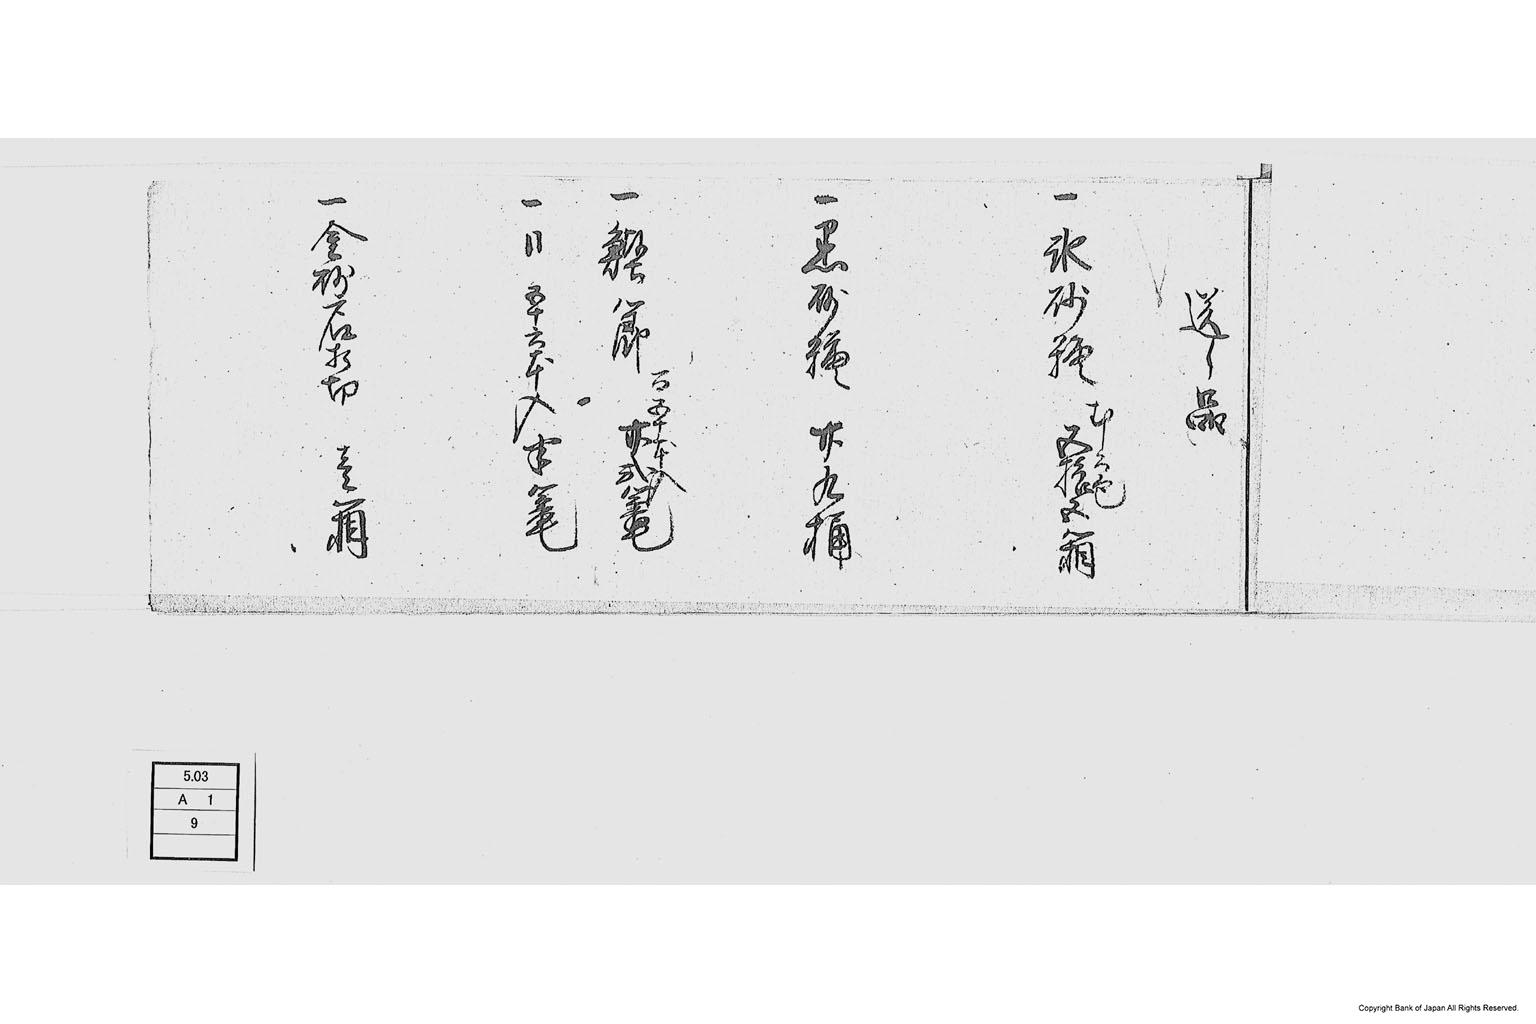 送り品
一氷砂糖
五拾五箱
一黒砂糖 廿九桶
一鰹節
百五十本入
廿弐篭
一同 五十六本入 半篭
一金砂石
壱箱
5.03
A 1
9
Copyright Bank of Japan All Rights Reserved.